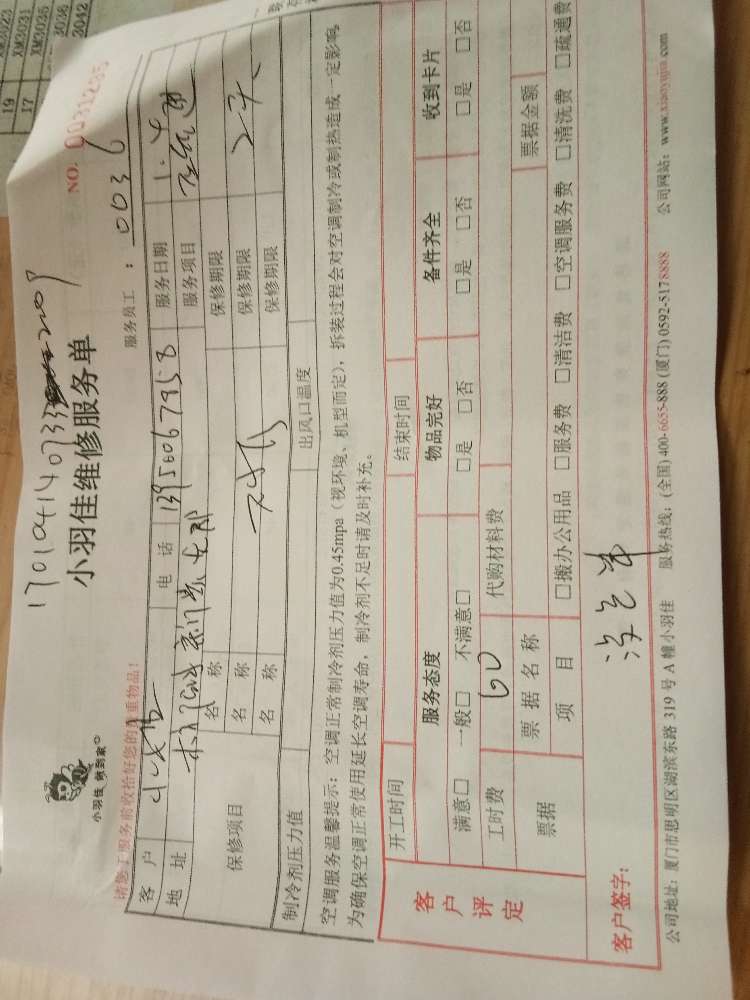 XM3023
19 XM3031
17 XM3035
3036
3042
小羽佳 做到家
小羽佳维修服务单
NO: 0031255
请您在服务前收拾好您的贵重物品!
服务员工: 0036
客户
电话 13950067958
服务日期
地址
服务项目
保修项目
名称
保修期限
名称
保修期限 2天
名称
保修期限
制冷剂压力值
出风口温度
空调服务温馨提示:空调正常制冷剂压力值为0.45mpa(视环境、机型而定),拆装过程会对空调制冷或制热造成一定影响,
为确保空调正常使用延长空调寿命,制冷剂不足时请及时补充。
客户评定
开工时间
结束时间
服务态度 物品完好 备件齐全 收到卡片
满意□ 一般□ 不满意□ □是 □否 □是 □否 □是 □否
工时费 60 代购材料费
票据 票据名称 票据金额
项目 □搬办公用品 □服务费 □清洁费 □空调服务费 □清洗费 □疏通费
客户签字:
公司地址:厦门市思明区湖滨东路 319 号 A 幢小羽佳 服务热线:(全国)400-6655-888 (厦门)0592-5178888 公司网站:www.xiaoyujia.com